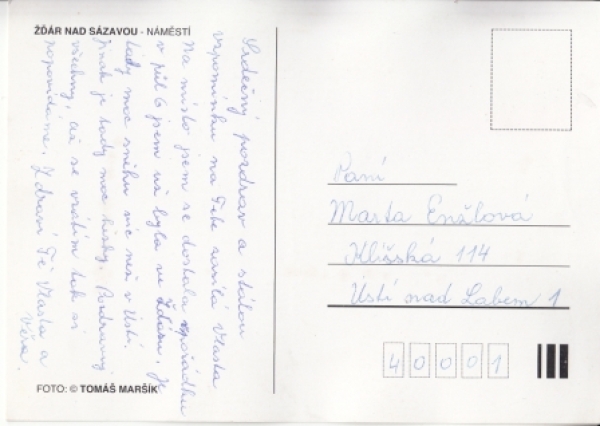 ŽĎÁR NAD SÁZAVOU - NÁMĚSTÍ
Srdečný pozdrav a stálou
vzpomínku na Tebe zasílá Vlasta
Na místo jsem se dostala v pořádku
v půl 6 jsem už byla ve Žďáru. Je
tady moc sněhu víc než v Ústí.
Jinak je tady moc hezky. Pozdravuj
všechny, až se vrátím tak si
popovídáme. Zdraví Tě Vlasta a
Věra.
FOTO: © TOMÁŠ MARŠÍK
Paní
Marta Enžlová
Klíšská 114
Ústí nad Labem 1
40001